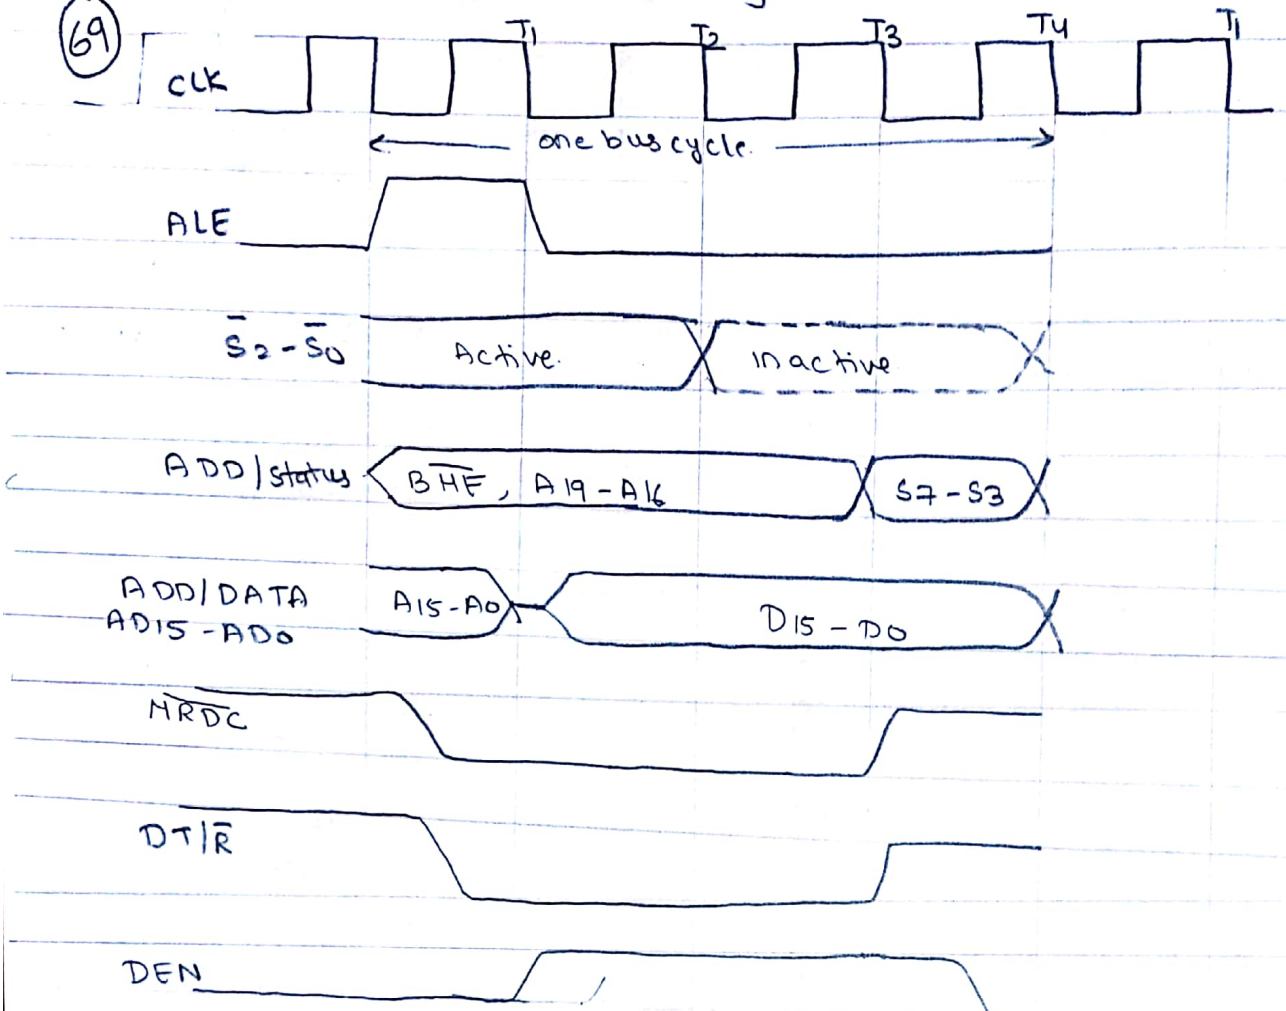 69
T1 T2 T3 T4 T1
CLK
one bus cycle.
ALE
S̅2 - S̅0 Active. Inactive
ADD/status B̅H̅E̅, A19-A16 S7-S3
ADD/DATA
AD15-AD0 A15-A0 D15-D0
M̅R̅D̅C̅
DT/R̅
DEN